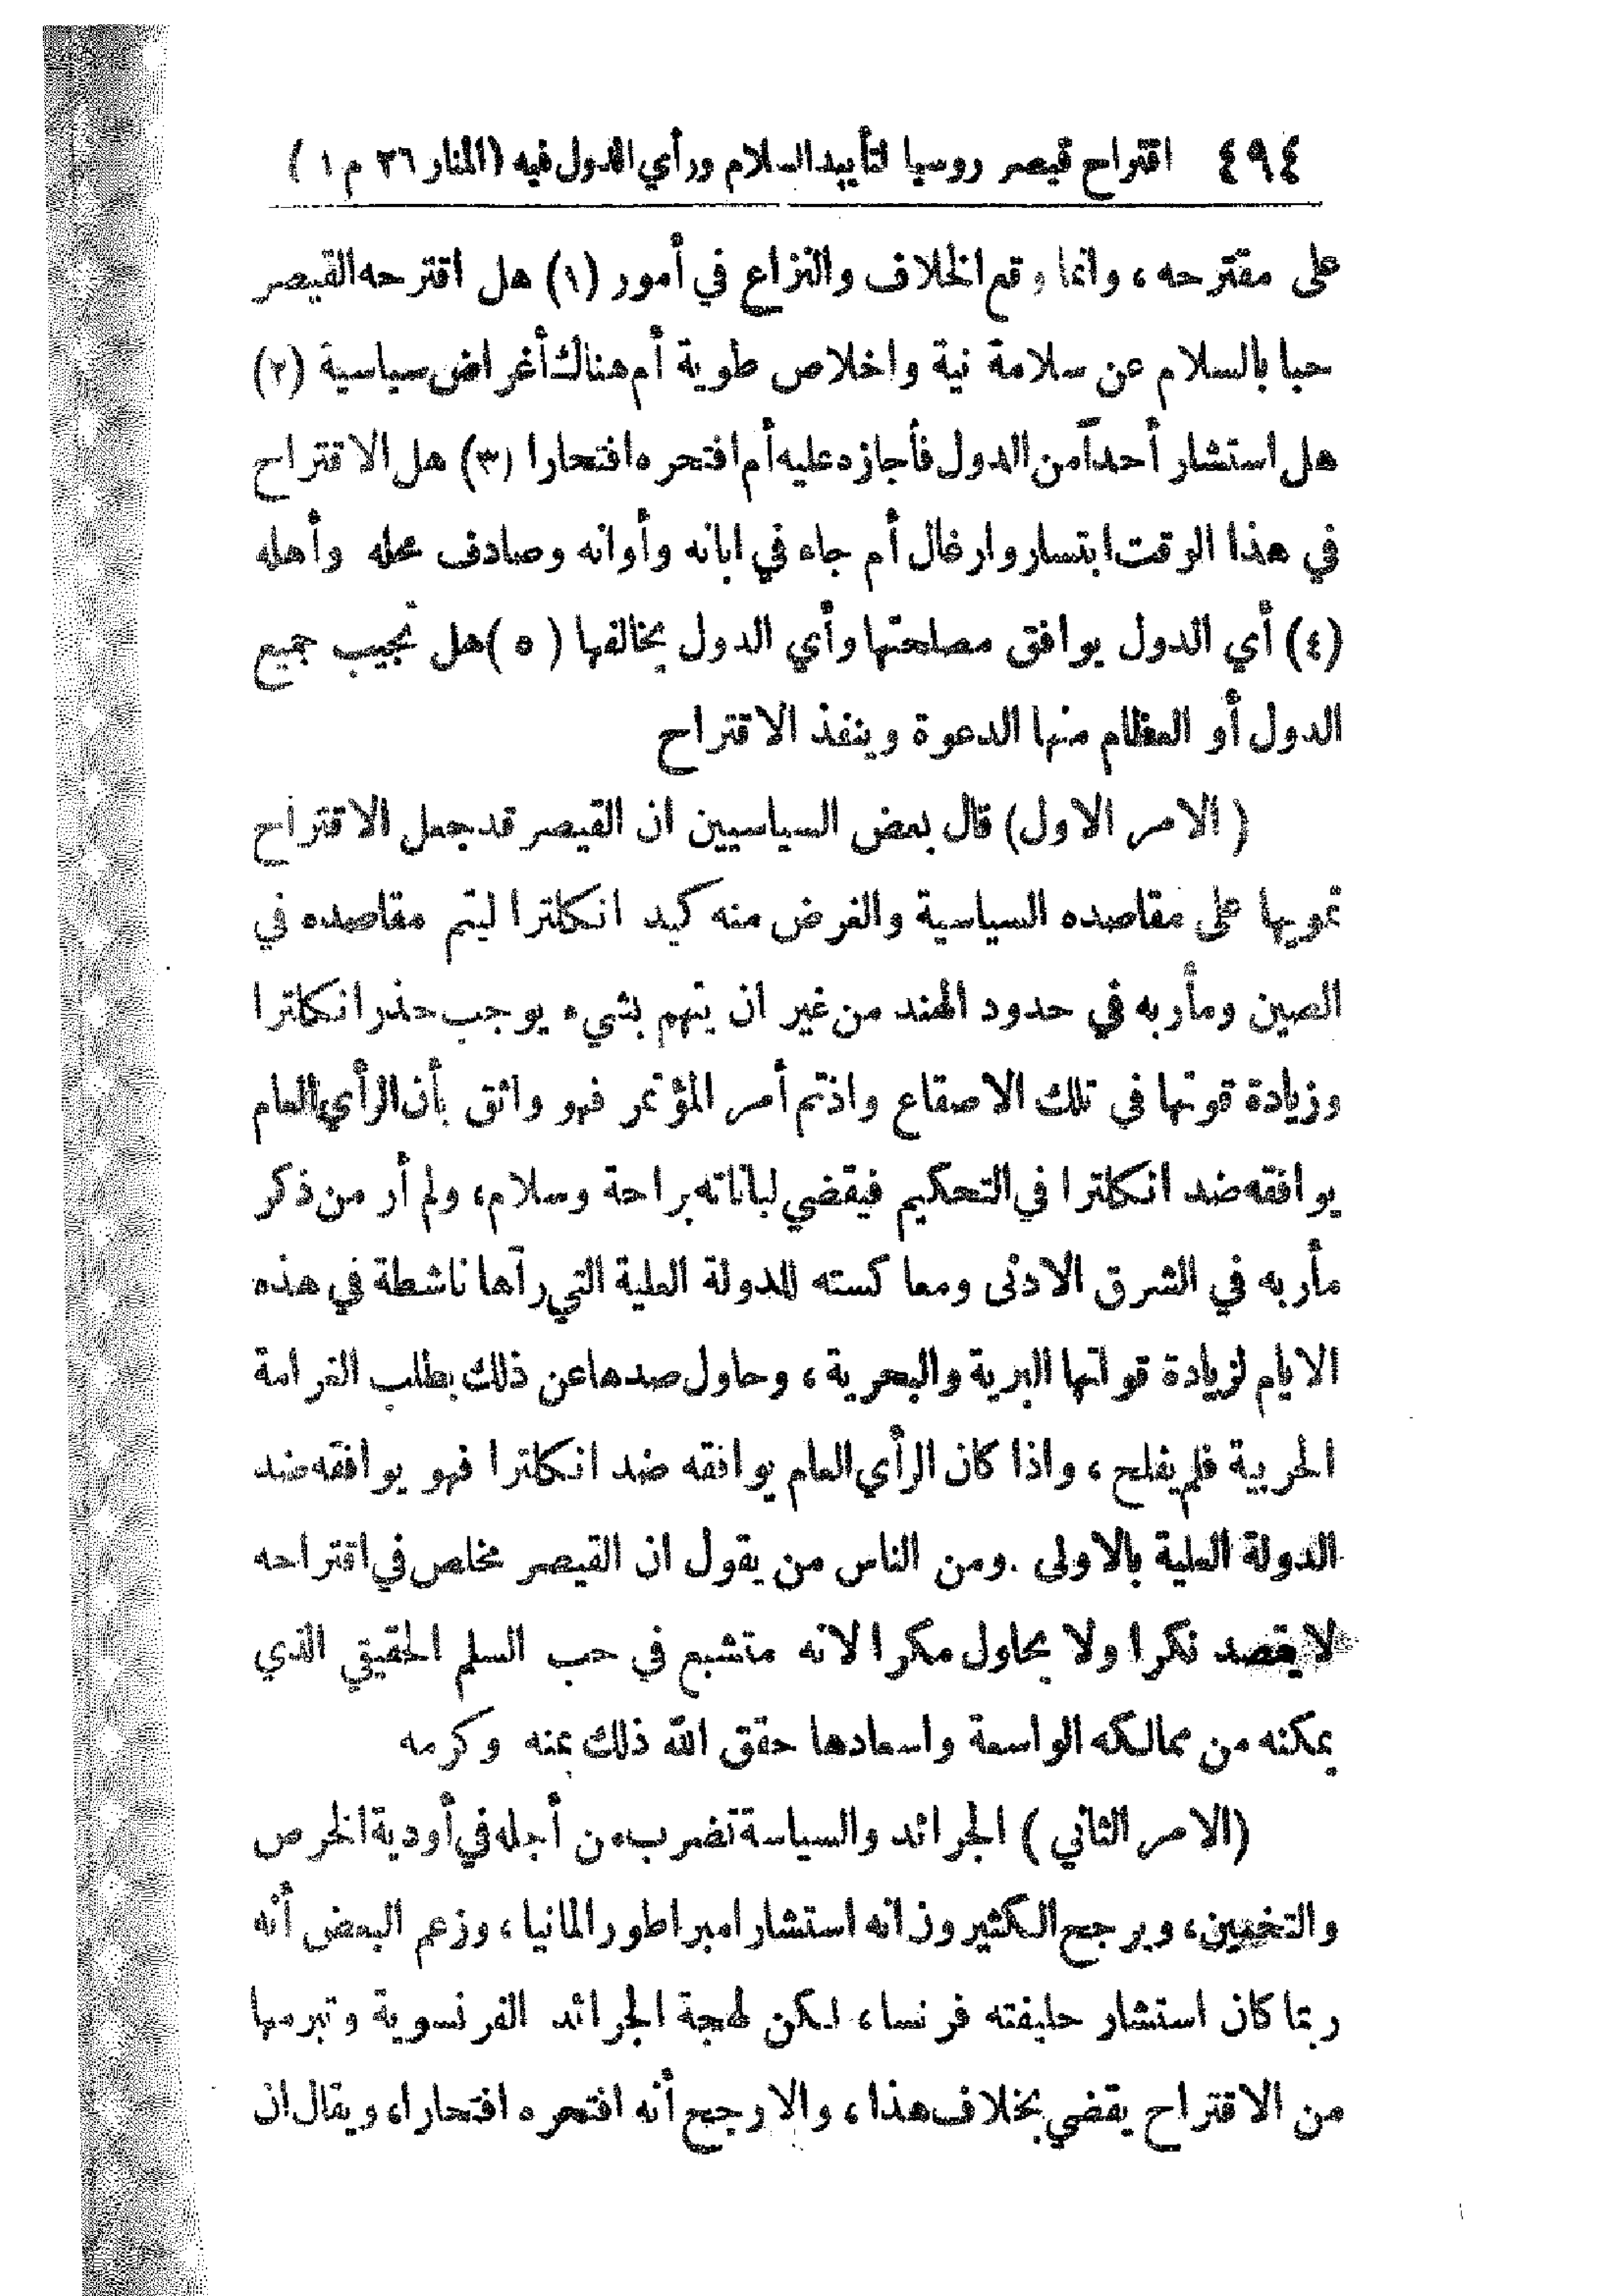 ٤٩٤ اقتراح قيصر روسيا لتأييد السلام ورأي الدول فيه (المنار ٢٦ م ١ )
على مقترحه ، وانما وقع الخلاف والنزاع في أمور (١) هل اقترحه القيصر
حبا بالسلام عن سلامة نية واخلاص طوية أم هناك أغراض سياسية (٢)
هل استشار أحداً من الدول فأجازه عليه أم افتحره افتحارا (٣) هل الاقتراح
في هذا الوقت ابتسار وارغال أم جاء في ابانه وأوانه وصادف محله وأهله
(٤) أي الدول يوافق مصلحتها وأي الدول يخالفها ( ٥ ) هل تجيب جميع
الدول أو العظام منها الدعوة وينفذ الاقتراح
( الامر الاول) قال بعض السياسيين ان القيصر قد جعل الاقتراح
تمويها على مقاصده السياسية والغرض منه كيد انكلترا ليتم مقاصده في
الصين ومأربه في حدود الهند من غير ان يتهم بشيء يوجب حذر انكلترا
وزيادة قوتها في تلك الاصقاع واذ تم أمر المؤتمر فهو واثق بأن الرأي العام
يوافقه ضد انكلترا في التحكيم فيقضي لباناته براحة وسلام ، ولم أر من ذكر
مأربه في الشرق الادنى ومعاكسته للدولة العلية التي رآها ناشطة في هذه
الايام لزيادة قواتها البرية والبحرية ، وحاول صدها عن ذلك بطلب الغرامة
الحربية فلم يفلح ، واذا كان الرأي العام يوافقه ضد انكلترا فهو يوافقه ضد
الدولة العلية بالاولى . ومن الناس من يقول ان القيصر مخلص في اقتراحه
لا يقصد نكرا ولا يحاول مكرا لانه متشبع في حب السلم الحقيقي الذي
يمكنه من ممالكه الواسعة واسعادها حقق الله ذلك بمنه وكرمه
(الامر الثاني ) الجرائد والسياسة تضرب من أجله في أودية الخرص
والتخمين ، ويرجح الكثيرون انه استشار امبراطور المانيا ، وزعم البعض أنه
ربما كان استشار حليفته فرنسا ، لكن لهجة الجرائد الفرنسوية وتبرمها
من الاقتراح يقضي بخلاف هذا ، والارجح أنه افتحره افتحارا ، ويقال ان